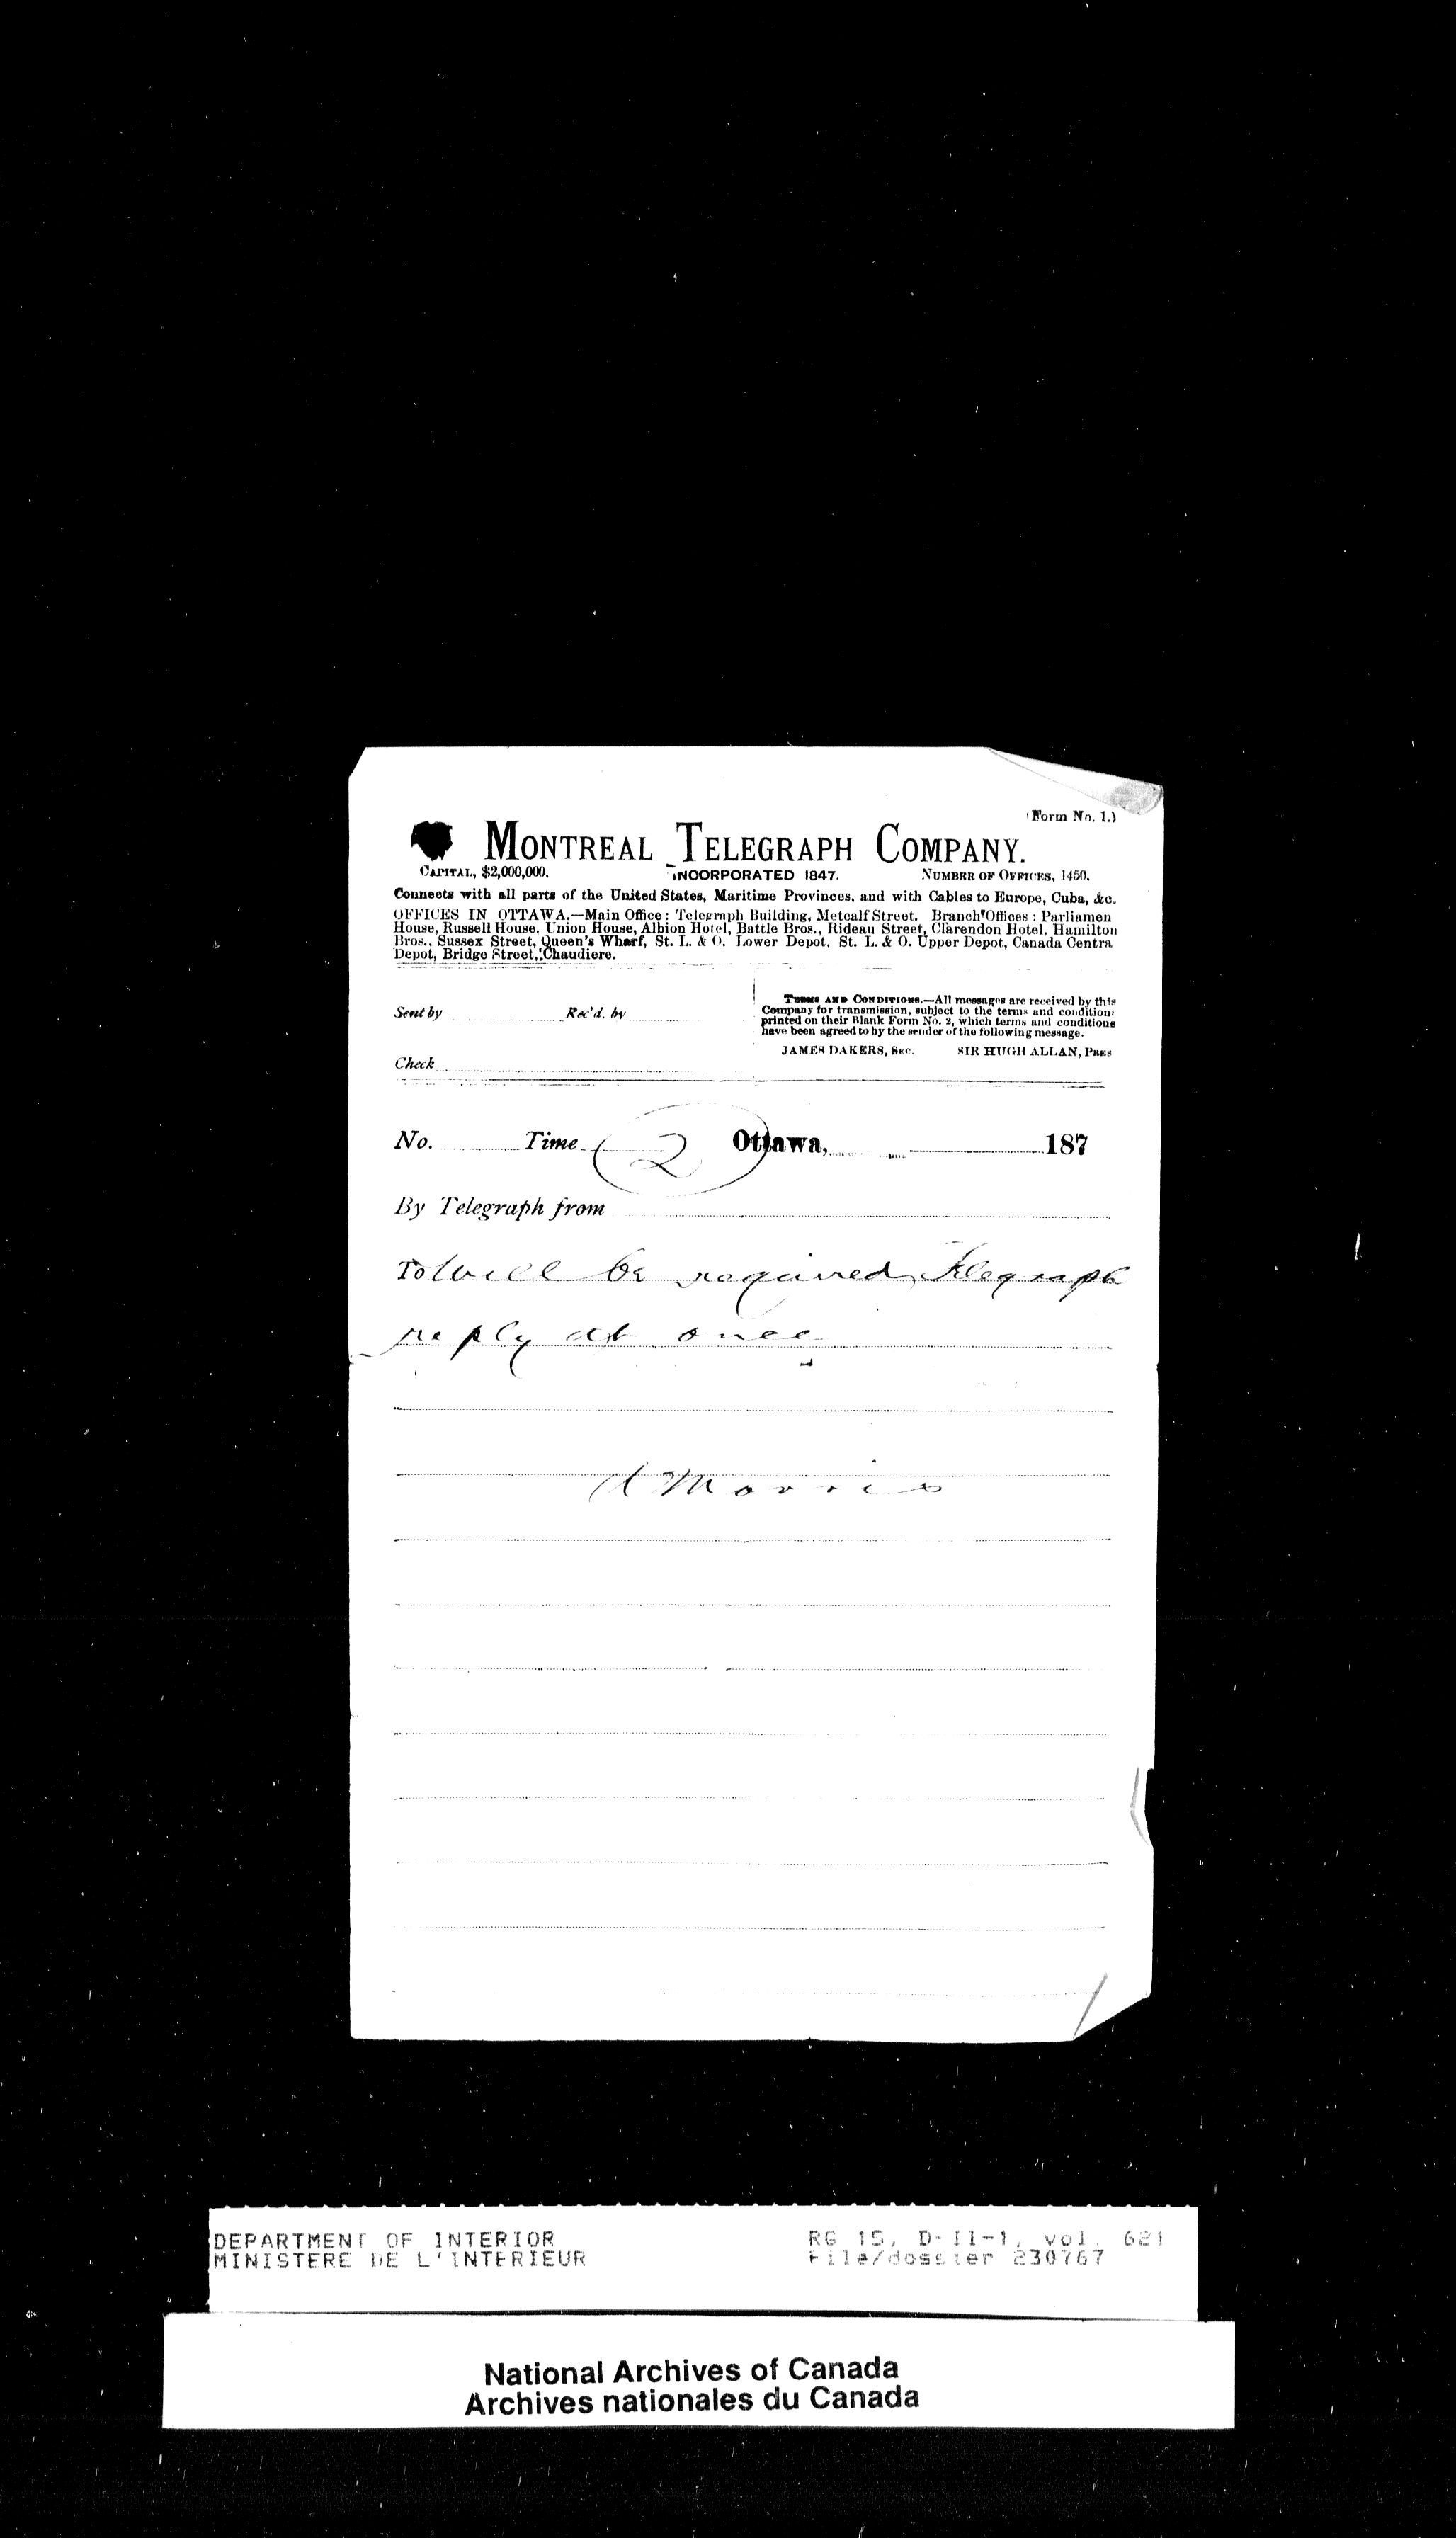 (Form No. 1.)
MONTREAL TELEGRAPH COMPANY.
CAPITAL, $2,000,000. INCORPORATED 1847. NUMBER OF OFFICES, 1450.
Connects with all parts of the United States, Maritime Provinces, and with Cables to Europe, Cuba, &c.
OFFICES IN OTTAWA.—Main Office: Telegraph Building, Metcalf Street. Branch Offices: Parliamen
House, Russell House, Union House, Albion Hotel, Battle Bros., Rideau Street, Clarendon Hotel, Hamilton
Bros., Sussex Street, Queen's Wharf, St. L. & O. Lower Depot, St. L. & O. Upper Depot, Canada Centra
Depot, Bridge Street, Chaudiere.
TERMS AND CONDITIONS.—All messages are received by this
Company for transmission, subject to the terms and condition
printed on their Blank Form No. 2, which terms and conditions
have been agreed to by the sender of the following message.
JAMES DAKERS, SEC. SIR HUGH ALLAN, PRES
Sent by Rec'd. by
Check
No. Time 2 Ottawa, 187
By Telegraph from
To will be required Telegraph
reply at once
A Morris
DEPARTMENT OF INTERIOR RG 15, D-II-1, vol. 621
MINISTERE DE L'INTERIEUR File/dossier 230767
National Archives of Canada
Archives nationales du Canada